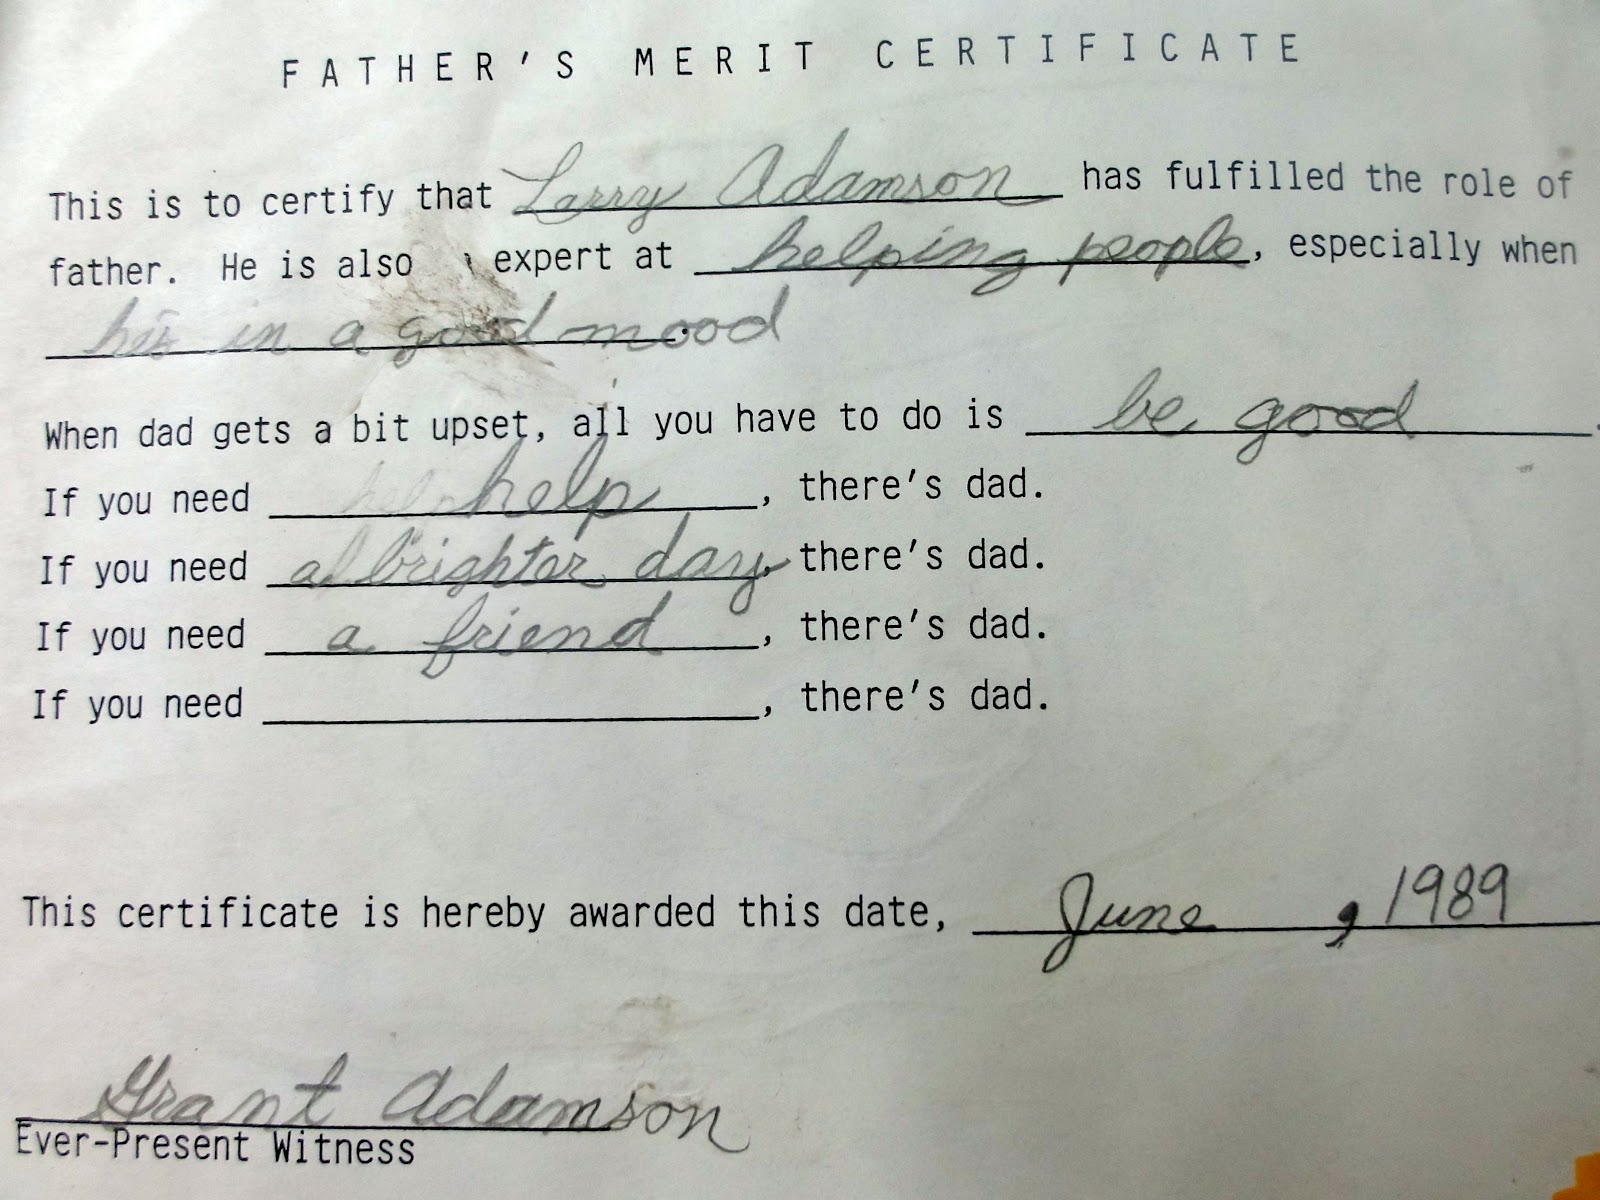 FATHER'S MERIT CERTIFICATE
This is to certify that Larry Adamson has fulfilled the role of
father. He is also expert at helping people, especially when
his in a good mood.
When dad gets a bit upset, all you have to do is be good.
If you need help, there's dad.
If you need a brighter day, there's dad.
If you need a friend, there's dad.
If you need ____________, there's dad.
This certificate is hereby awarded this date, June, 1989
Grant Adamson
Ever-Present Witness